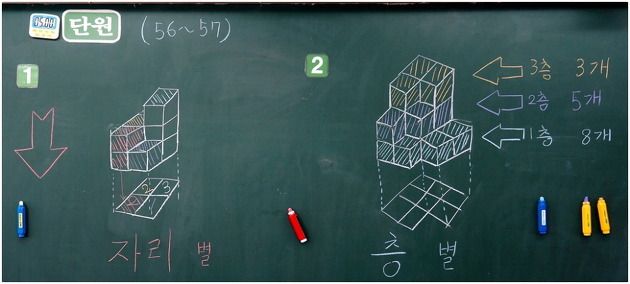 05:00
단원 (56~57)
1
자리 별
2 3
2
3층 3개
2층 5개
1층 8개
층 별